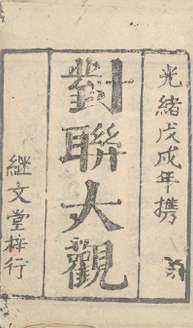 光緒戊戌年携
對聯大觀
継文堂梓行